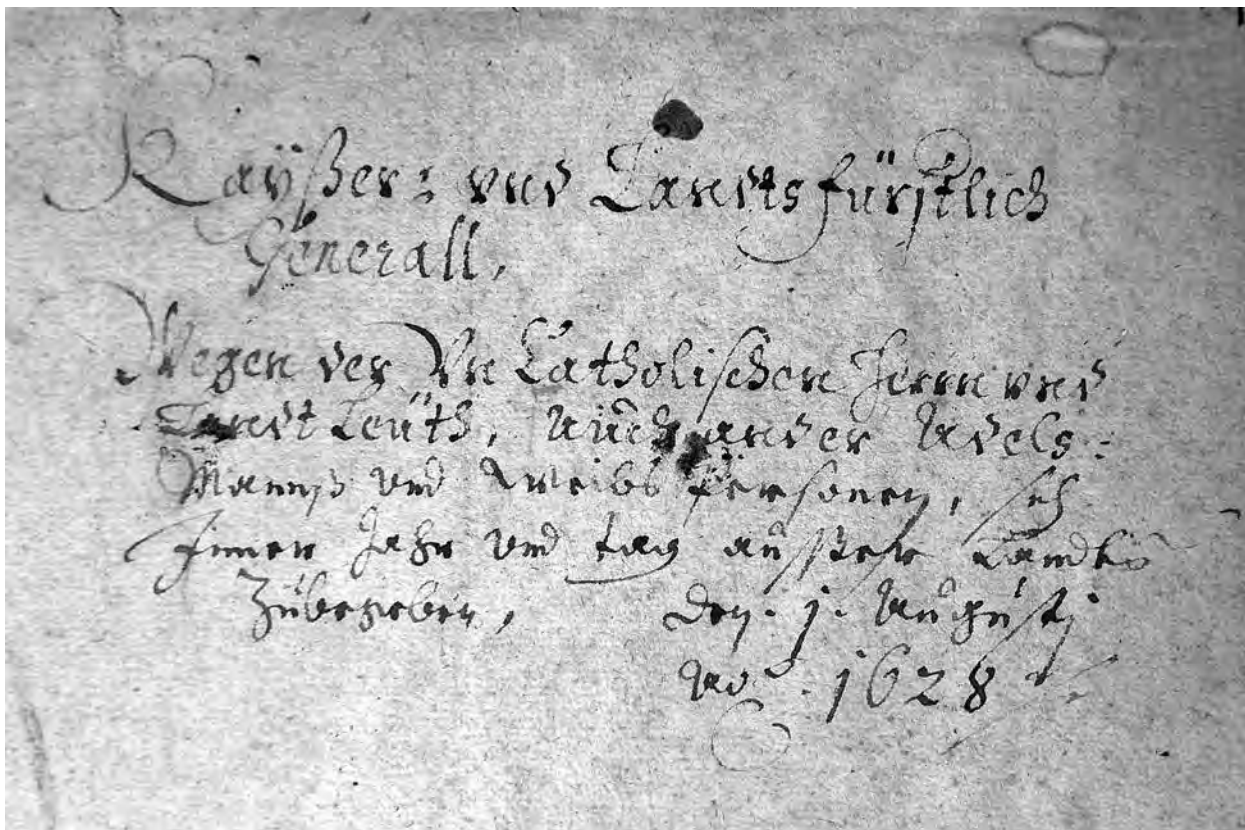 Kaÿßer: vnd Landtsfürstlich
Generall,
Wegen der Vn Catholischen Herrn vnd
Landt Leüth, Auch ander Adels:
Manns vnd Weibs Personen, sich
Inner Jahr vnd tag ausser Landts
Zubegeben, Den. j. Augustj
Ao. 1628